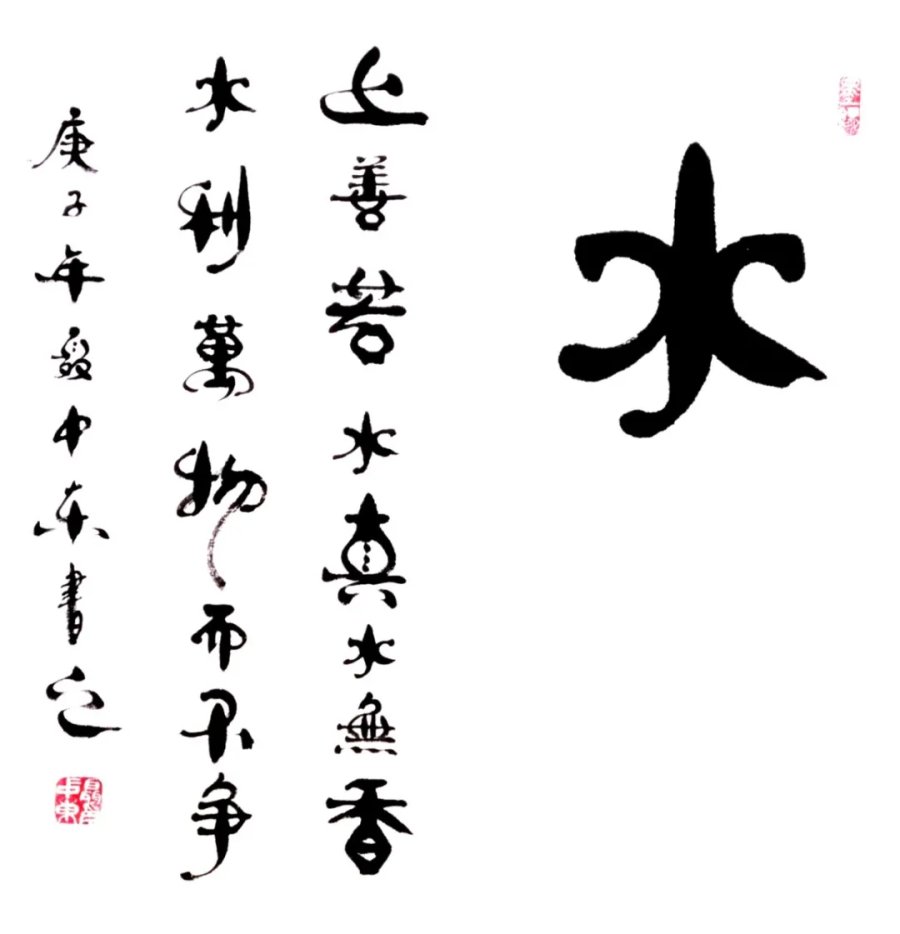 水
上善若水真水無香
水利萬物而不争
庚子年中东書之
中東